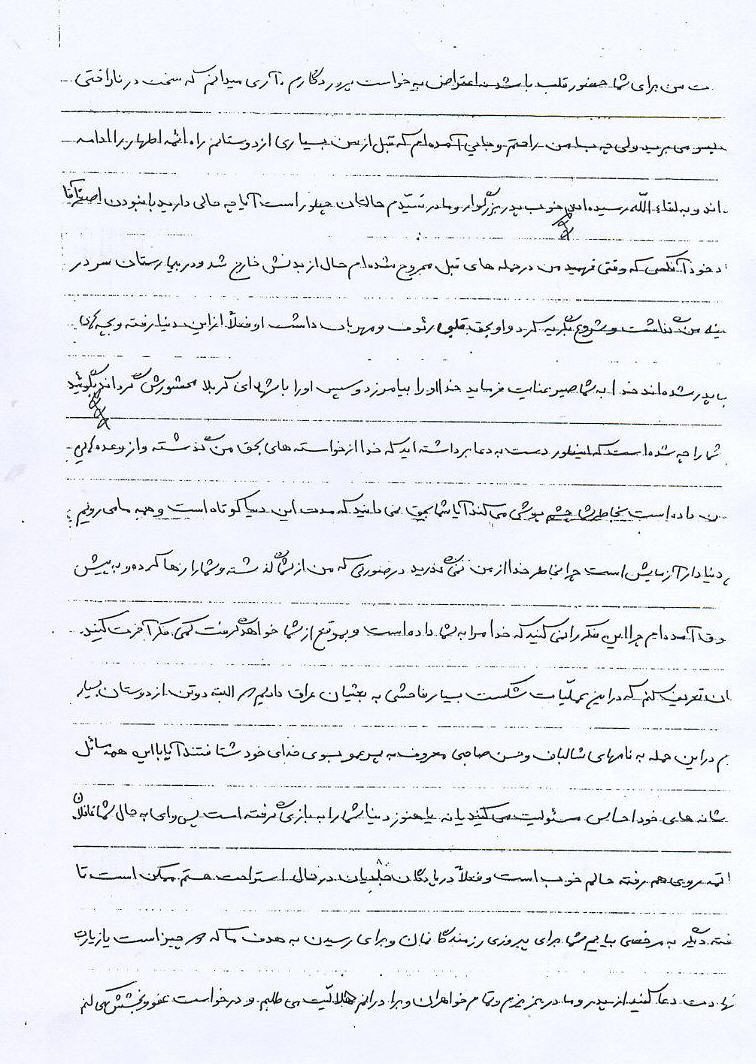 ت من برای شما حضور قلب باشد نه اعتراض به خواست پروردگارم. آری میدانم که سخت در ناراحتی
بسر می برید ولی چه بسا من راحتم و جایی آمده ام که قبل از من بسیاری از دوستانم راه ائمه اطهار را ادامه
اند و به لقاء الله رسیده اند خوب پدر بزرگوار و مادر حالتان چطور است آیا چه حالی دارید با نبودن اصغر آقا
د خود آنکسی که وقتی فهمید من در حمله های قبل مجروح شده ام حال از بدنش خارج شد و در بیمارستان سر در
سینه من گذاشت و شروع بگریه کرد و او بحق قلبی رئوف و مهربان داشت او فعلاً از این دنیا رفته و بچه های
با پدر شده اند خدا به شما صبر عنایت فرماید خدا او را بیامرزد و سپس او را با شهدای کربلا محشورش گرداند بگوئید
شما را چه شده است که اینطور دست به دعا برداشته اید که خدا از خواسته های بحق من گذشته و از وعده هایی
من داده است بخاطر شما چشم پوشی می کند آیا شما بحق نمی دانید که مدت این دنیا کوتاه است و همه ما می رویم
دنیا دار آزمایش است چرا بخاطر خدا از من نمی گذرید در صورتی که من از شما گذشته و شما را رها کرده و به پیش
آمده ام چرا این فکر را نمی کنید که خدا مرا به شما داده است و بموقع از شما خواهد گرفت کمی فکر آخرت کنید.
تان تعریف کنم که در این عملیات شکست بسیار فاحشی به بعثیان عراق دادیم البته دو تن از دوستان بسیار
م در این حمله به نامهای شالبان و حسن صاحبی معروف به بسوی خدای خود شتافتند آیا با این همه مسائل
شانه های خود احساس مسئولیت می کنید یا نه یا هنوز دنیا شما را به بازی گرفته است پس وای به حال شما غافلان
روی هم رفته حالم خوب است و فعلاً در پادگان در حال استراحت هستم ممکن است تا
هفته دیگر به مرخصی بیایم شما برای پیروزی رزمندگانمان و برای رسیدن به هدف ما که چیز است یا زیارت
شهادت دعا کنید از پدر و مادر عزیزم و تمام خواهران و برادرانم حلالیت می طلبم و درخواست عفو و بخشش می کنم